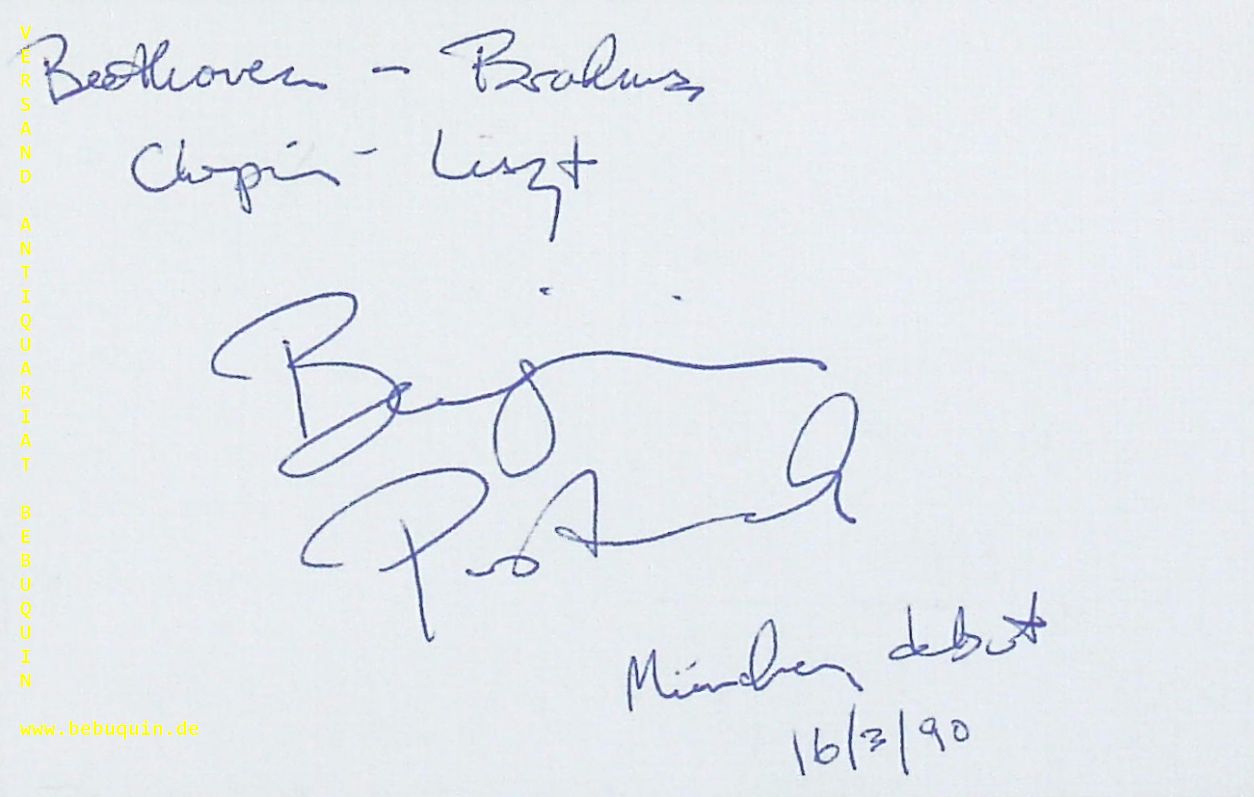 Beethoven - Brahms
Chopin - Liszt
Benjamin
Pasternack
München debut
16/3/90
VERSAND ANTIQUARIAT BEBUQUIN
www.bebuquin.de